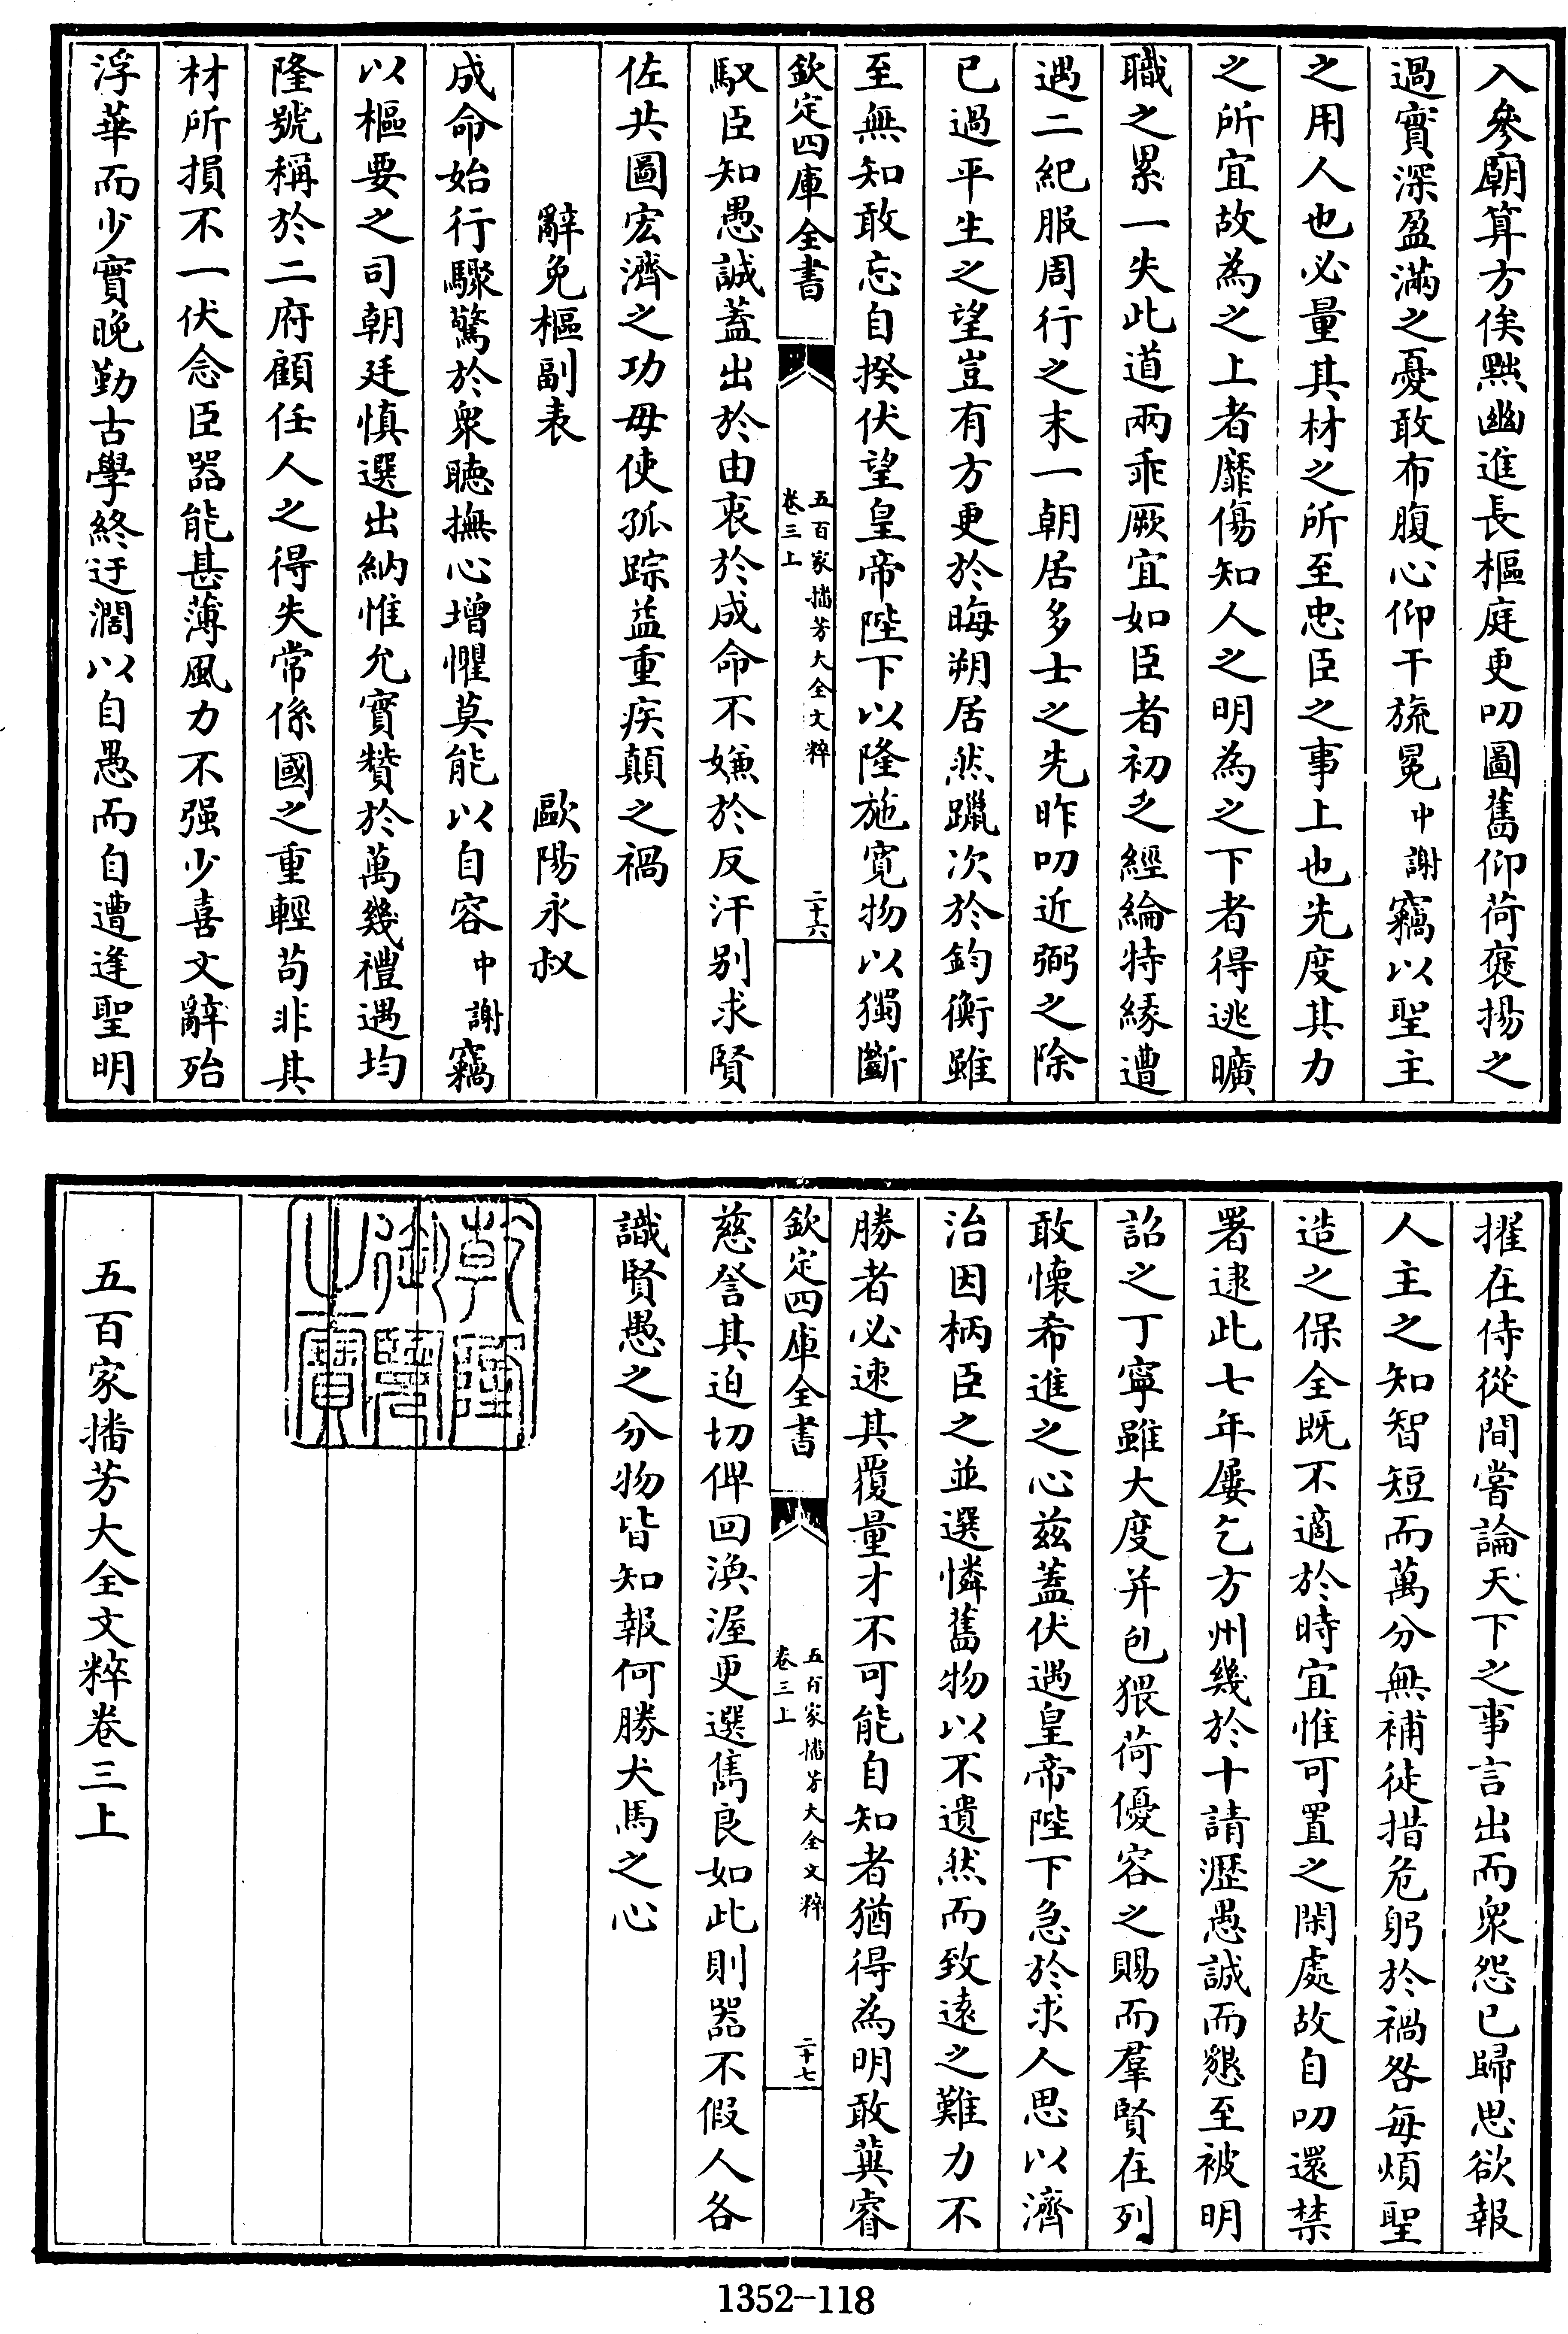 入參廟算方俟黜幽進長樞庭更叨圖舊仰荷褒揚之
過實深盈滿之憂敢布腹心仰干旒冕中謝竊以聖主
之用人也必量其材之所至忠臣之事上也先度其力
之所宜故為之上者靡傷知人之明為之下者得逃曠
職之累一失此道兩乖厥宜如臣者初乏經綸特緣遭
遇二紀服周行之末一朝居多士之先昨叨近弼之除
已過平生之望豈有方更於晦朔居然躐次於鈞衡雖
至無知敢忘自揆伏望皇帝陛下以隆施寛物以獨斷
欽定四庫全書
五百家播芳大全文粹
卷三上
二十六
馭臣知愚誠蓋出於由衷於成命不嫌於反汗别求賢
佐共圖宏濟之功毋使孤踪益重疾顛之禍
辭免樞副表 歐陽永叔
成命始行驟驚於衆聽撫心增懼莫能以自容中謝竊
以樞要之司朝廷慎選出納惟允實贊於萬幾禮遇均
隆號稱於二府顧任人之得失常係國之重輕苟非其
材所損不一伏念臣器能甚薄風力不强少喜文辭殆
浮華而少實晚勤古學終迂濶以自愚而自遭逢聖明
擢在侍從間嘗論天下之事言出而衆怨已歸思欲報
人主之知智短而萬分無補徒措危躬於禍咎每煩聖
造之保全既不適於時宜惟可置之閑處故自叨還禁
署逮此七年屢乞方州幾於十請瀝愚誠而懇至被明
詔之丁寧雖大度并包猥荷優容之賜而羣賢在列
敢懐希進之心兹蓋伏遇皇帝陛下急於求人思以濟
治因柄臣之並選憐舊物以不遺然而致遠之難力不
勝者必速其覆量才不可能自知者猶得為明敢冀睿
欽定四庫全書
五百家播芳大全文粹
卷三上
二十七
慈詧其迫切俾回渙渥更選雋良如此則器不假人各
識賢愚之分物皆知報何勝犬馬之心
乾隆御覽之寶
五百家播芳大全文粹卷三上
1352-118